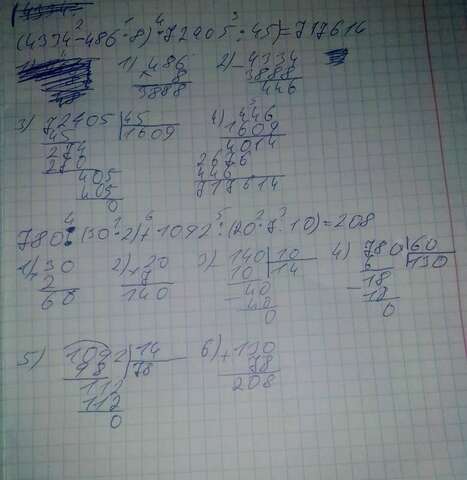 (4334 - 486 · 8) · 72405 : 45) = 717614
1) 486
8
3888
2) - 4334
3888
446
3) 72405 | 45
45 1609
274
270
405
405
0
4) 446
1609
4014
2676
446
717614
780 : (30 · 2) + 1092 : (20 · 7 : 10) = 208
1) 30
2
60
2) 20
7
140
3) - 140 | 10
10 14
- 40
40
0
4) 780 | 60
6 130
- 18
18
0
5) 1092 | 14
98 78
112
112
0
6) + 130
78
208